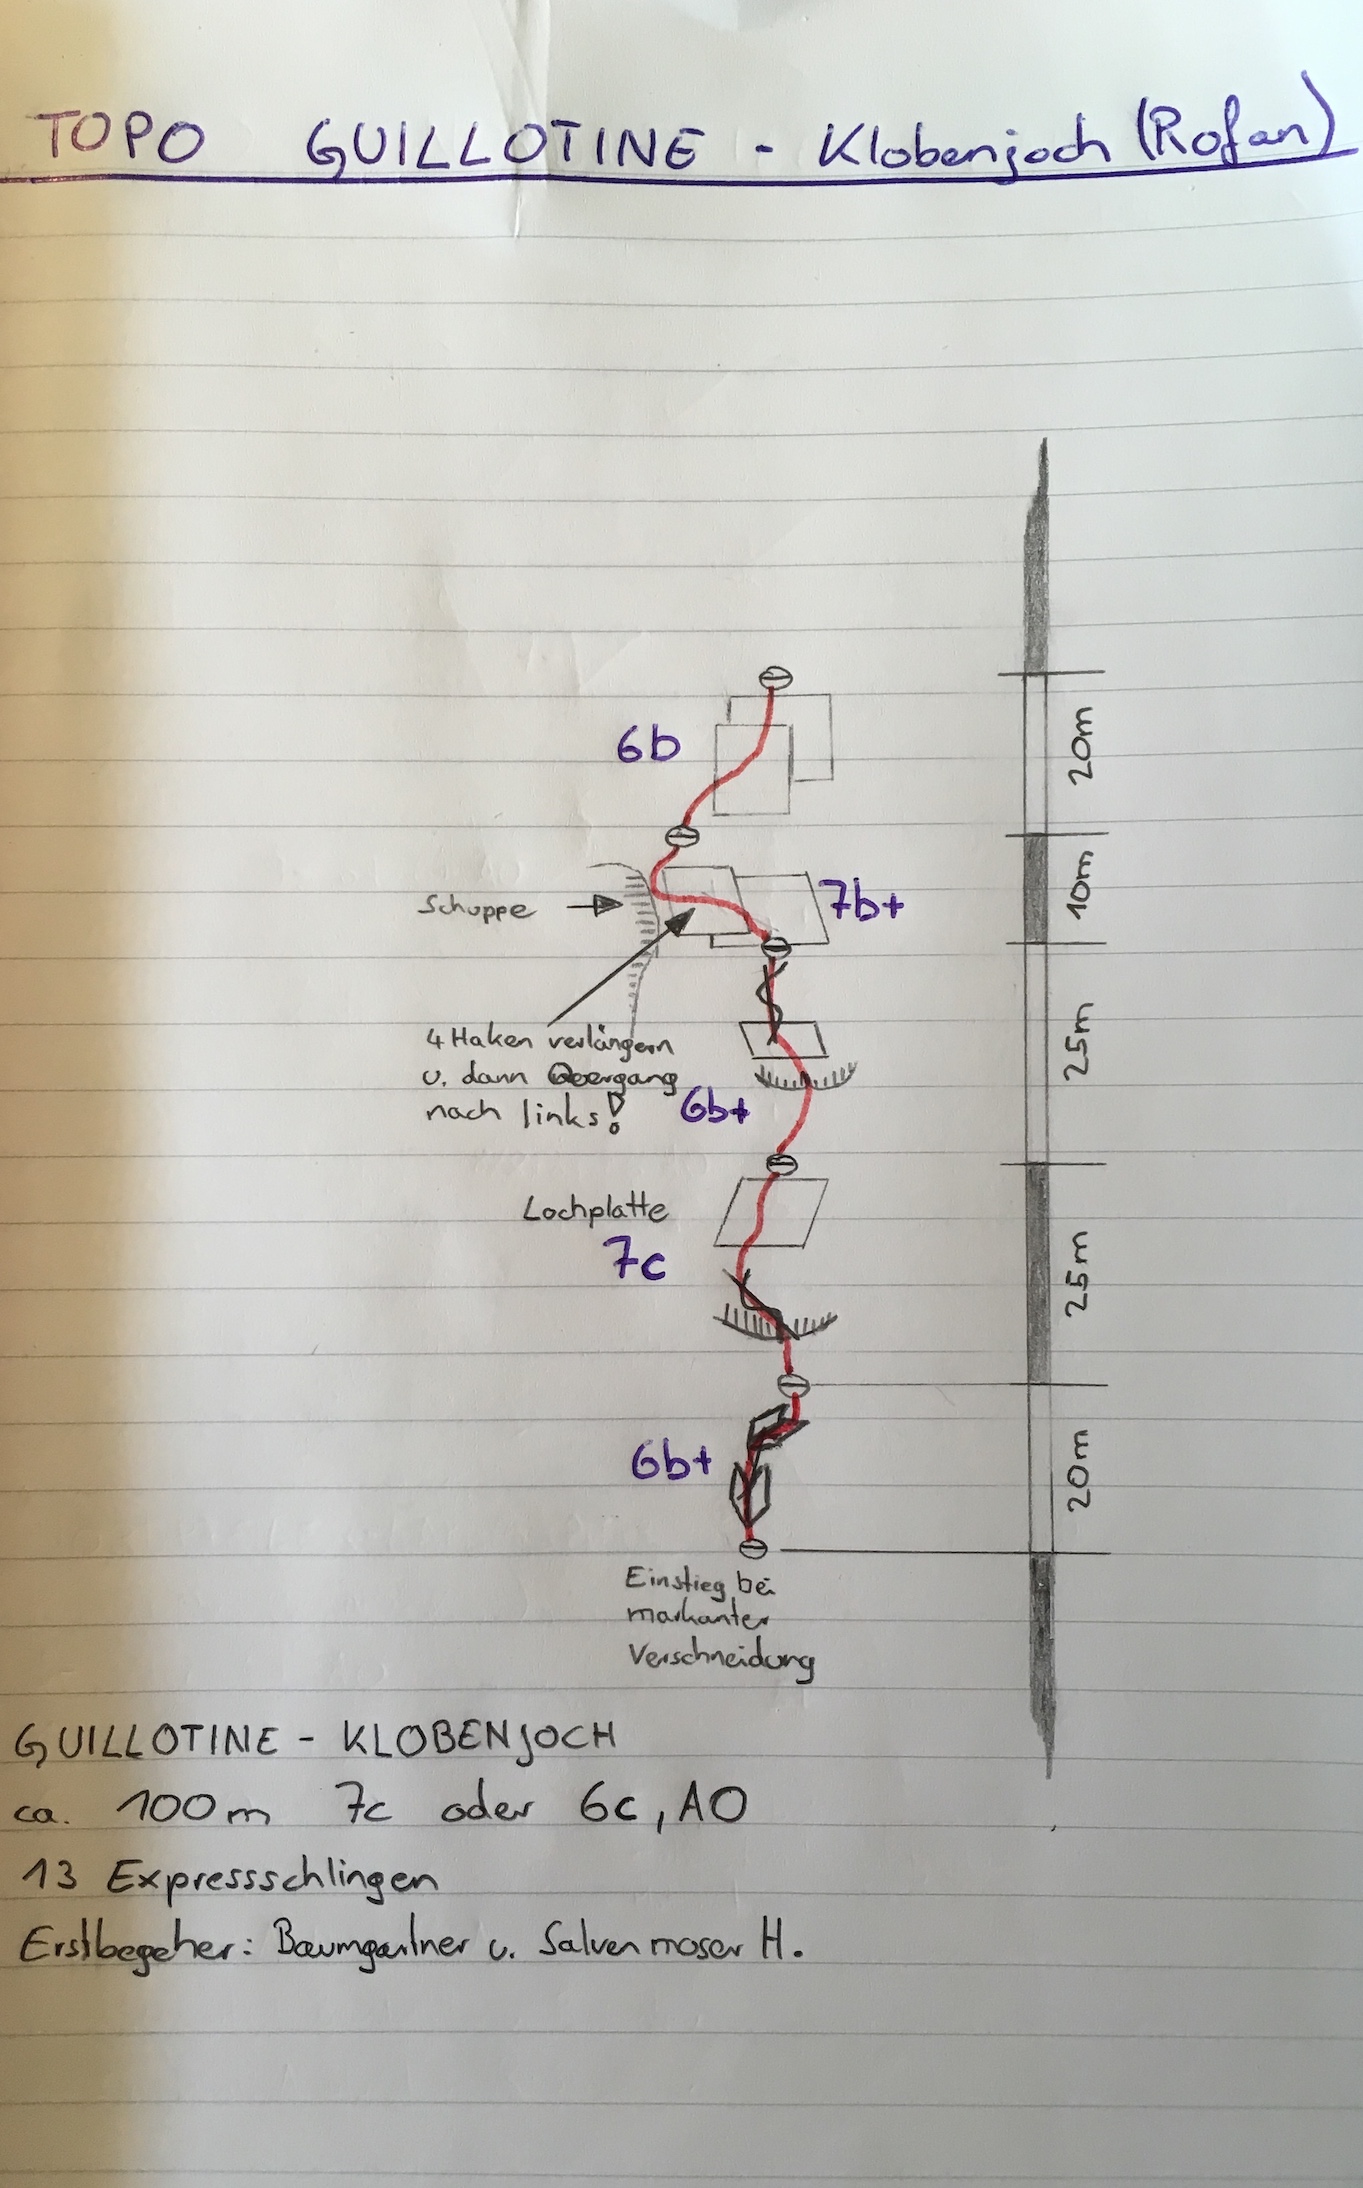 TOPO GUILLOTINE - Klobenjoch (Rofan)
6b
20m
Schuppe
7b+
10m
4 Haken verlängern
u. dann Quergang
nach links!
25m
6b+
Lochplatte
7c
25m
6b+
20m
Einstieg bei
markanter
Verschneidung
GUILLOTINE - KLOBENJOCH
ca. 100m 7c oder 6c, A0
13 Expressschlingen
Erstbegeher: Baumgartner u. Salvenmoser H.